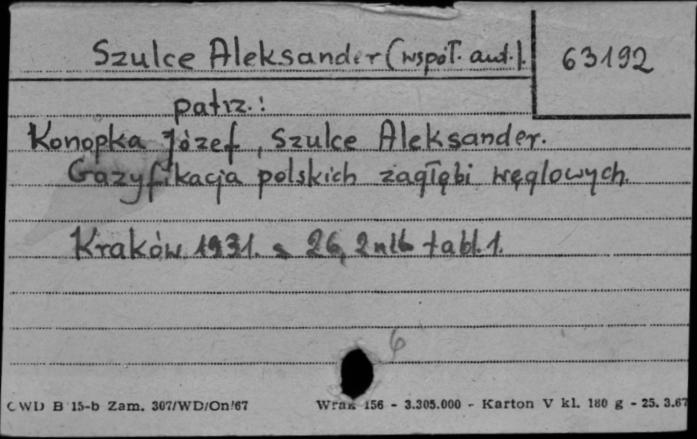 Szulce Aleksander (współ. aut.).
63192
patrz.:
Konopka Józef, Szulce Aleksander.
Gazyfikacja polskich zagłębi węglowych.
Kraków 1931. s 26, 2 nlb tabl. 1.
6
CWD B 15-b Zam. 307/WD/On/67 Wrak 156 - 3.305.000 - Karton V kl. 180 g - 25. 3.67